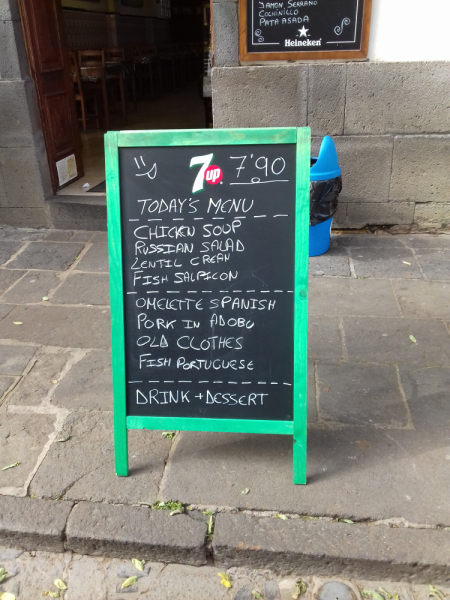 JAMON SERRANO
COCHINILLO
PATA ASADA
Heineken
7up 7'90
TODAY'S MENU
CHICKEN SOUP
RUSSIAN SALAD
LENTIL CREAM
FISH SALPICON
OMELETTE SPANISH
PORK IN ADOBO
OLD CLOTHES
FISH PORTUGUESE
DRINK + DESSERT